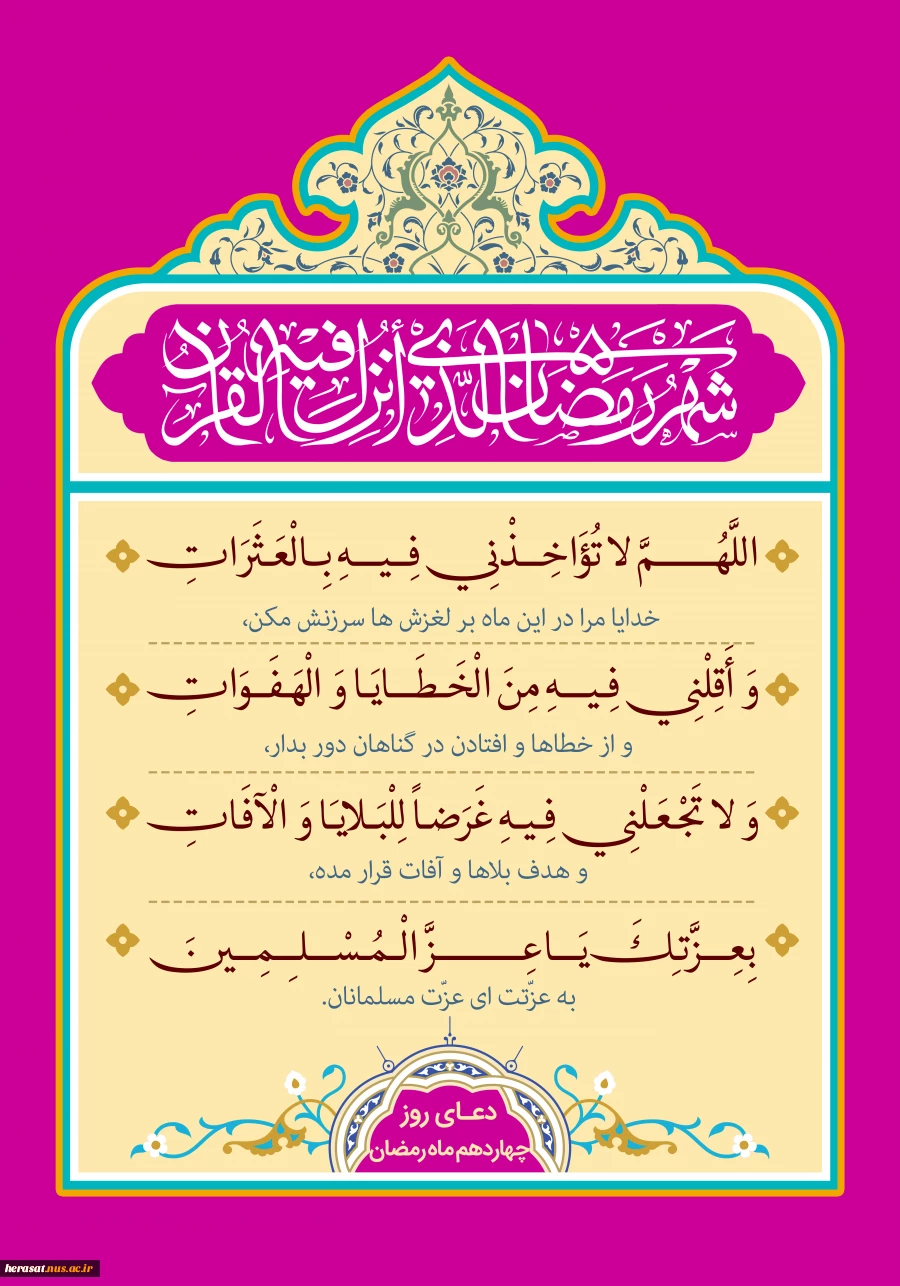 شَهْرُ رَمَضَانَ الَّذِي أُنْزِلَ فِيهِ الْقُرْآنُ
اللَّهُمَّ لا تُؤَاخِذْنِي فِيهِ بِالْعَثَرَاتِ
خدایا مرا در این ماه بر لغزش ها سرزنش مکن،
وَ أَقِلْنِي فِيهِ مِنَ الْخَطَايَا وَ الْهَفَوَاتِ
و از خطاها و افتادن در گناهان دور بدار،
وَ لا تَجْعَلْنِي فِيهِ غَرَضاً لِلْبَلايَا وَ الْآفَاتِ
و هدف بلاها و آفات قرار مده،
بِعِزَّتِكَ يَا عِزَّ الْمُسْلِمِينَ
به عزّتت ای عزّت مسلمانان.
دعای روز
چهاردهم ماه رمضان
herasat.nus.ac.ir